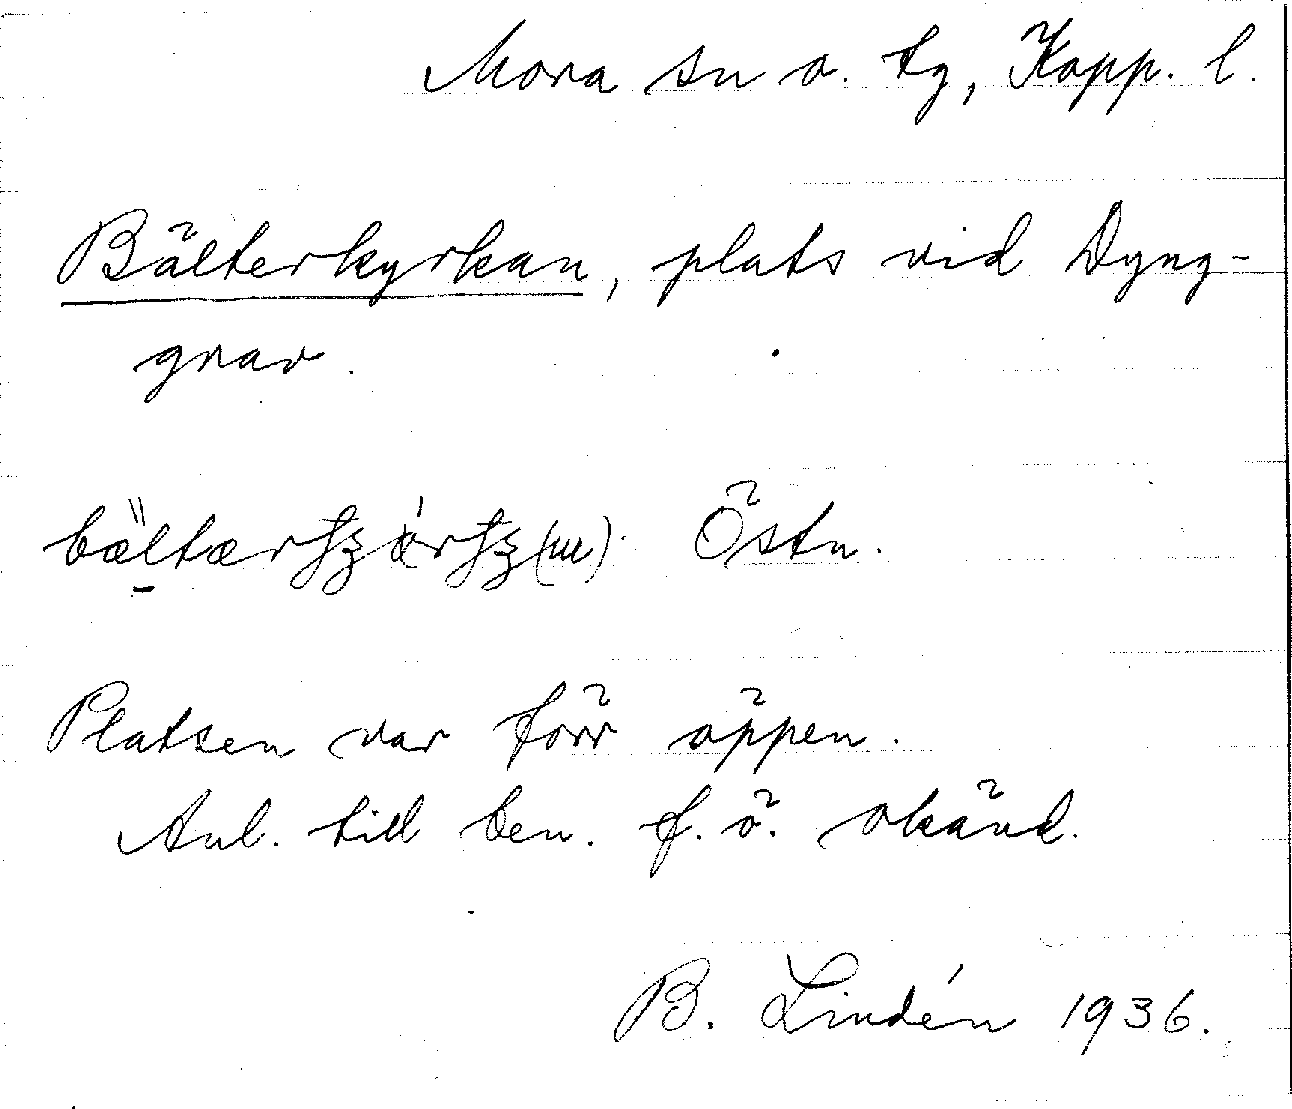 Mora sn o. tg, Kopp. l.
Bälterkyrkan, plats vid Dyng-
grav.
Östn.
Platsen var förr öppen.
Anl. till ben. f. ö. okänd.
B. Lindén 1936.